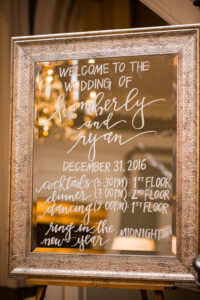 WELCOME TO THE
WEDDING OF
Kimberly
and
ryan
DECEMBER 31, 2016
cocktails (5:30PM) 1ST FLOOR
dinner (7:00PM) 2ND FLOOR
dancing (9:00PM) 1ST FLOOR
ring in the
new year MIDNIGHT